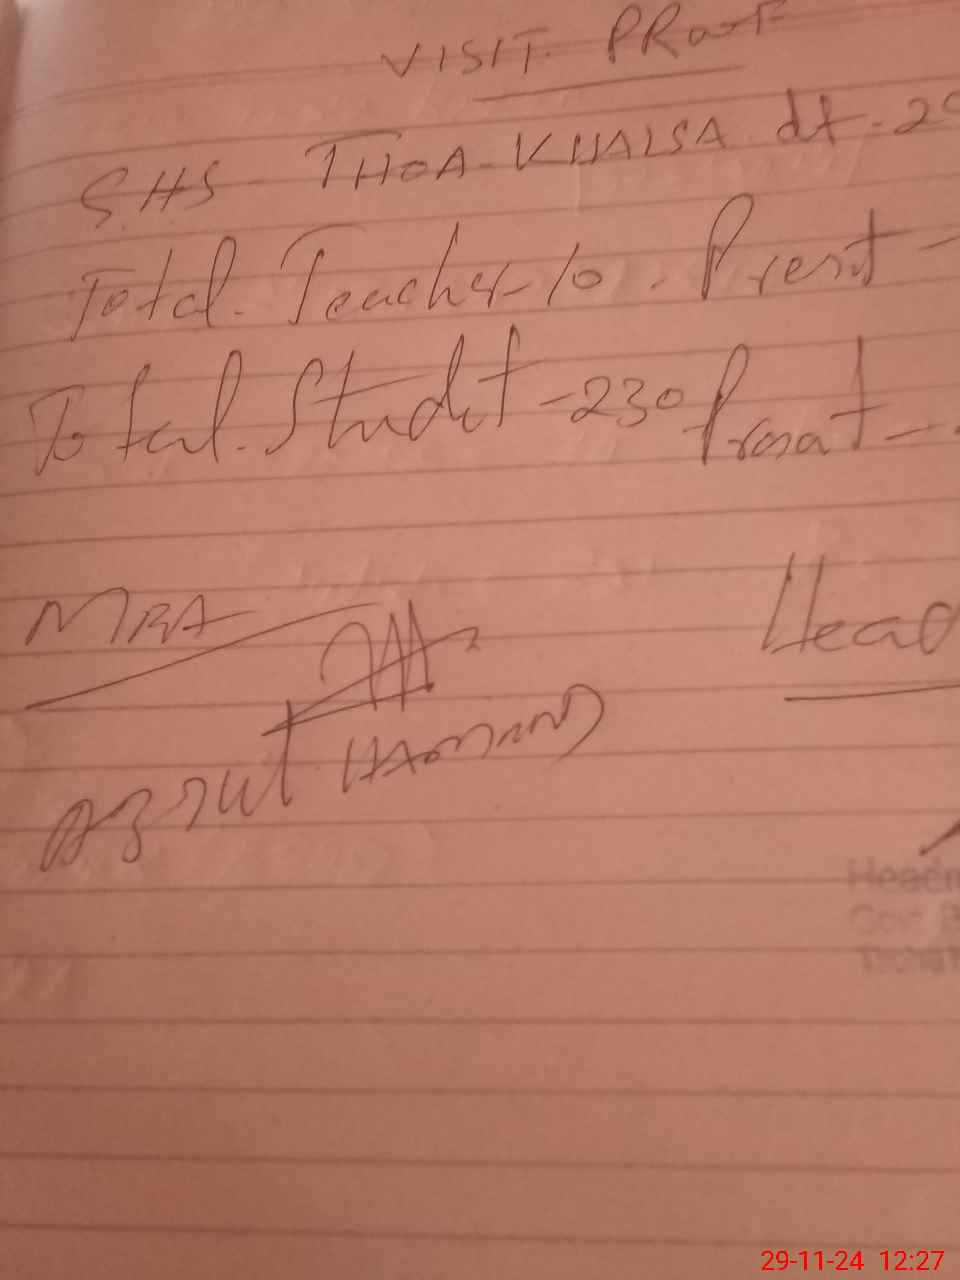 VISIT. PRooF
SHS THOA-KHALSA dt-29
Total. Teacher-10. Present -
Total. Studet -230 Present -
MRA
Head
Azmut Hammad
Headm
Govt B
29-11-24 12:27